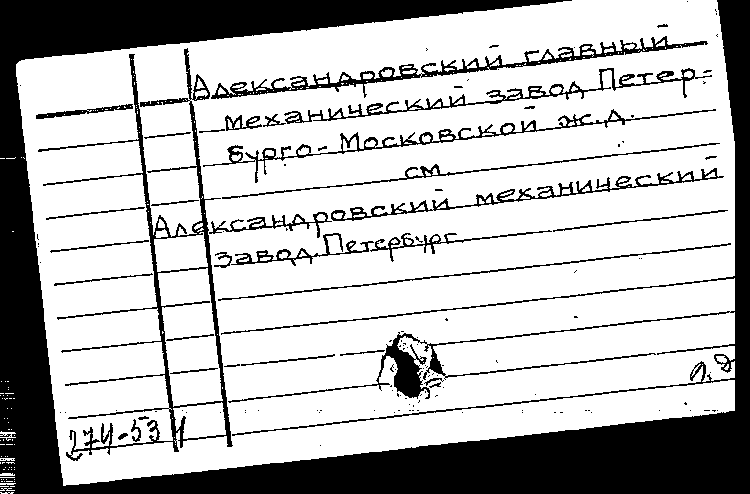 Александровский главный
механический завод Петер-
бурго-Московской ж.д.
см.
Александровский механический
завод. Петербург
л.д
274-53